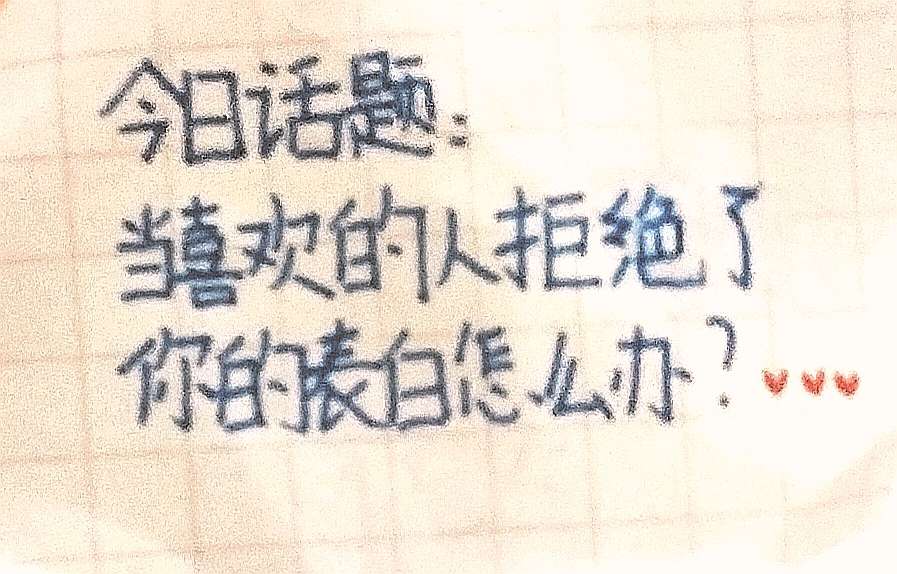 今日话题:
当喜欢的人拒绝了
你的表白怎么办?